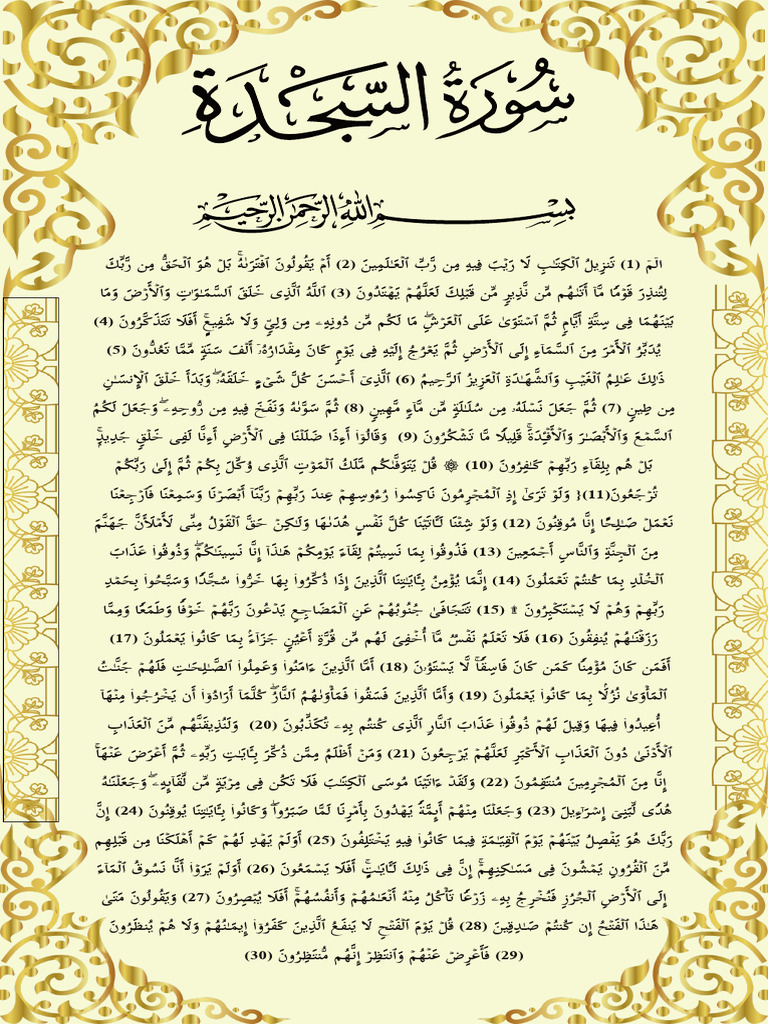 سُورَةُ السَّجْدَةِ
بِسْمِ اللَّهِ الرَّحْمَٰنِ الرَّحِيمِ
الٓمٓ (1) تَنزِيلُ ٱلْكِتَٰبِ لَا رَيْبَ فِيهِ مِن رَّبِّ ٱلْعَٰلَمِينَ (2) أَمْ يَقُولُونَ ٱفْتَرَىٰهُۚ بَلْ هُوَ ٱلْحَقُّ مِن رَّبِّكَ
لِتُنذِرَ قَوْمًا مَّآ أَتَىٰهُم مِّن نَّذِيرٍ مِّن قَبْلِكَ لَعَلَّهُمْ يَهْتَدُونَ (3) ٱللَّهُ ٱلَّذِى خَلَقَ ٱلسَّمَٰوَٰتِ وَٱلْأَرْضَ وَمَا
بَيْنَهُمَا فِى سِتَّةِ أَيَّامٍ ثُمَّ ٱسْتَوَىٰ عَلَى ٱلْعَرْشِۖ مَا لَكُم مِّن دُونِهِۦ مِن وَلِىٍّ وَلَا شَفِيعٍۚ أَفَلَا تَتَذَكَّرُونَ (4)
يُدَبِّرُ ٱلْأَمْرَ مِنَ ٱلسَّمَآءِ إِلَى ٱلْأَرْضِ ثُمَّ يَعْرُجُ إِلَيْهِ فِى يَوْمٍ كَانَ مِقْدَارُهُۥٓ أَلْفَ سَنَةٍ مِّمَّا تَعُدُّونَ (5)
ذَٰلِكَ عَٰلِمُ ٱلْغَيْبِ وَٱلشَّهَٰدَةِ ٱلْعَزِيزُ ٱلرَّحِيمُ (6) ٱلَّذِىٓ أَحْسَنَ كُلَّ شَىْءٍ خَلَقَهُۥۖ وَبَدَأَ خَلْقَ ٱلْإِنسَٰنِ
مِن طِينٍ (7) ثُمَّ جَعَلَ نَسْلَهُۥ مِن سُلَٰلَةٍ مِّن مَّآءٍ مَّهِينٍ (8) ثُمَّ سَوَّىٰهُ وَنَفَخَ فِيهِ مِن رُّوحِهِۦۖ وَجَعَلَ لَكُمُ
ٱلسَّمْعَ وَٱلْأَبْصَٰرَ وَٱلْأَفْـِٔدَةَۚ قَلِيلًا مَّا تَشْكُرُونَ (9) وَقَالُوٓا۟ أَءِذَا ضَلَلْنَا فِى ٱلْأَرْضِ أَءِنَّا لَفِى خَلْقٍ جَدِيدٍۚ
بَلْ هُم بِلِقَآءِ رَبِّهِمْ كَٰفِرُونَ (10) ۞ قُلْ يَتَوَفَّىٰكُم مَّلَكُ ٱلْمَوْتِ ٱلَّذِى وُكِّلَ بِكُمْ ثُمَّ إِلَىٰ رَبِّكُمْ
تُرْجَعُونَ(11){ وَلَوْ تَرَىٰٓ إِذِ ٱلْمُجْرِمُونَ نَاكِسُوا۟ رُءُوسِهِمْ عِندَ رَبِّهِمْ رَبَّنَآ أَبْصَرْنَا وَسَمِعْنَا فَٱرْجِعْنَا
نَعْمَلْ صَٰلِحًا إِنَّا مُوقِنُونَ (12) وَلَوْ شِئْنَا لَءَاتَيْنَا كُلَّ نَفْسٍ هُدَىٰهَا وَلَٰكِنْ حَقَّ ٱلْقَوْلُ مِنِّى لَأَمْلَأَنَّ جَهَنَّمَ
مِنَ ٱلْجِنَّةِ وَٱلنَّاسِ أَجْمَعِينَ (13) فَذُوقُوا۟ بِمَا نَسِيتُمْ لِقَآءَ يَوْمِكُمْ هَٰذَآ إِنَّا نَسِينَٰكُمْۖ وَذُوقُوا۟ عَذَابَ
ٱلْخُلْدِ بِمَا كُنتُمْ تَعْمَلُونَ (14) إِنَّمَا يُؤْمِنُ بِـَٔايَٰتِنَا ٱلَّذِينَ إِذَا ذُكِّرُوا۟ بِهَا خَرُّوا۟ سُجَّدًا وَسَبَّحُوا۟ بِحَمْدِ
رَبِّهِمْ وَهُمْ لَا يَسْتَكْبِرُونَ ۩ (15) تَتَجَافَىٰ جُنُوبُهُمْ عَنِ ٱلْمَضَاجِعِ يَدْعُونَ رَبَّهُمْ خَوْفًا وَطَمَعًا وَمِمَّا
رَزَقْنَٰهُمْ يُنفِقُونَ (16) فَلَا تَعْلَمُ نَفْسٌ مَّآ أُخْفِىَ لَهُم مِّن قُرَّةِ أَعْيُنٍ جَزَآءًۢ بِمَا كَانُوا۟ يَعْمَلُونَ (17)
أَفَمَن كَانَ مُؤْمِنًا كَمَن كَانَ فَاسِقًاۚ لَّا يَسْتَوُۥنَ (18) أَمَّا ٱلَّذِينَ ءَامَنُوا۟ وَعَمِلُوا۟ ٱلصَّٰلِحَٰتِ فَلَهُمْ جَنَّٰتُ
ٱلْمَأْوَىٰ نُزُلًۢا بِمَا كَانُوا۟ يَعْمَلُونَ (19) وَأَمَّا ٱلَّذِينَ فَسَقُوا۟ فَمَأْوَىٰهُمُ ٱلنَّارُۖ كُلَّمَآ أَرَادُوٓا۟ أَن يَخْرُجُوا۟ مِنْهَآ
أُعِيدُوا۟ فِيهَا وَقِيلَ لَهُمْ ذُوقُوا۟ عَذَابَ ٱلنَّارِ ٱلَّذِى كُنتُم بِهِۦ تُكَذِّبُونَ (20) وَلَنُذِيقَنَّهُم مِّنَ ٱلْعَذَابِ
ٱلْأَدْنَىٰ دُونَ ٱلْعَذَابِ ٱلْأَكْبَرِ لَعَلَّهُمْ يَرْجِعُونَ (21) وَمَنْ أَظْلَمُ مِمَّن ذُكِّرَ بِـَٔايَٰتِ رَبِّهِۦ ثُمَّ أَعْرَضَ عَنْهَآۚ
إِنَّا مِنَ ٱلْمُجْرِمِينَ مُنتَقِمُونَ (22) وَلَقَدْ ءَاتَيْنَا مُوسَى ٱلْكِتَٰبَ فَلَا تَكُن فِى مِرْيَةٍ مِّن لِّقَآئِهِۦۖ وَجَعَلْنَٰهُ
هُدًى لِّبَنِىٓ إِسْرَٰٓءِيلَ (23) وَجَعَلْنَا مِنْهُمْ أَئِمَّةً يَهْدُونَ بِأَمْرِنَا لَمَّا صَبَرُوا۟ۖ وَكَانُوا۟ بِـَٔايَٰتِنَا يُوقِنُونَ (24) إِنَّ
رَبَّكَ هُوَ يَفْصِلُ بَيْنَهُمْ يَوْمَ ٱلْقِيَٰمَةِ فِيمَا كَانُوا۟ فِيهِ يَخْتَلِفُونَ (25) أَوَلَمْ يَهْدِ لَهُمْ كَمْ أَهْلَكْنَا مِن قَبْلِهِم
مِّنَ ٱلْقُرُونِ يَمْشُونَ فِى مَسَٰكِنِهِمْۚ إِنَّ فِى ذَٰلِكَ لَـَٔايَٰتٍۖ أَفَلَا يَسْمَعُونَ (26) أَوَلَمْ يَرَوْا۟ أَنَّا نَسُوقُ ٱلْمَآءَ
إِلَى ٱلْأَرْضِ ٱلْجُرُزِ فَنُخْرِجُ بِهِۦ زَرْعًا تَأْكُلُ مِنْهُ أَنْعَٰمُهُمْ وَأَنفُسُهُمْۖ أَفَلَا يُبْصِرُونَ (27) وَيَقُولُونَ مَتَىٰ
هَٰذَا ٱلْفَتْحُ إِن كُنتُمْ صَٰدِقِينَ (28) قُلْ يَوْمَ ٱلْفَتْحِ لَا يَنفَعُ ٱلَّذِينَ كَفَرُوٓا۟ إِيمَٰنُهُمْ وَلَا هُمْ يُنظَرُونَ
(29) فَأَعْرِضْ عَنْهُمْ وَٱنتَظِرْ إِنَّهُم مُّنتَظِرُونَ (30)